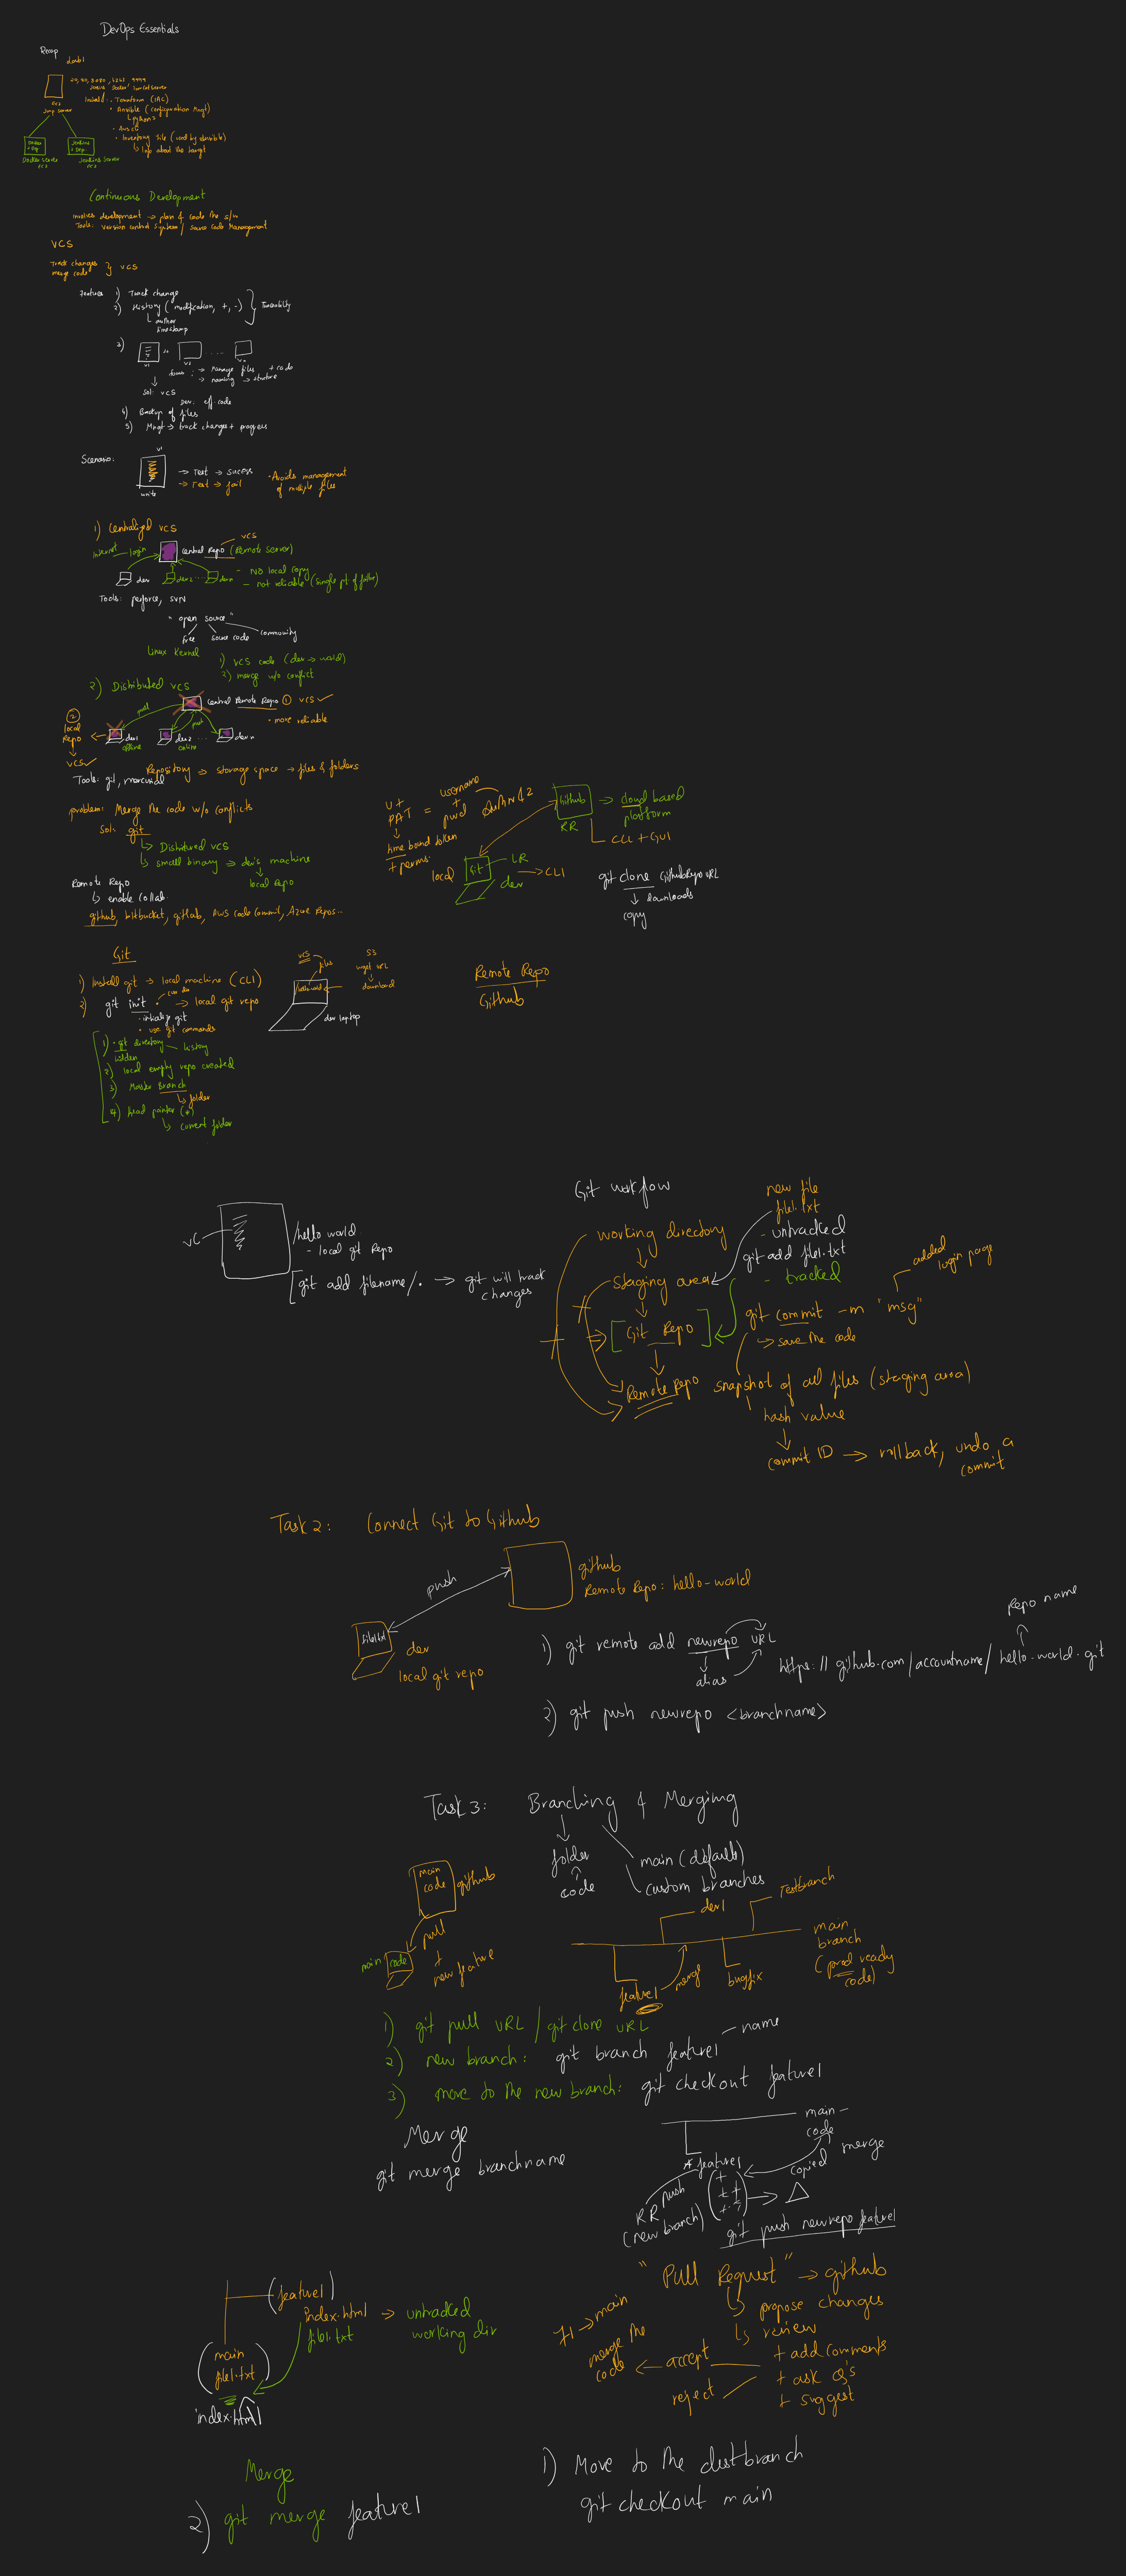 DevOps Essentials
Recap
Install: Terraform (IAC)
Ansible (configuration Mngt)
Jump Server
Inventory file (used by ansible)
Info about the target
Docker Server
Jenkins Server
Continuous Development
involves development → plan & code the s/w
Tools: version control system / source code management
VCS
Track changes
merge code } VCS
Features 1) Track change
2) History (modification, +, -) } Traceability
author
timestamp
3)
V1
→ manage files + code
→ naming → structure
sol: VCS
Dev: eff. code
4) Backup of files
5) Mngt → track changes + progress
Scenario:
V1
write
→ Test → success
→ Test → fail
• Avoids management
of multiple files
1) Centralized VCS
VCS
internet login
Central Repo (Remote Server)
dev
dev2 ... devn
- No local copy
- not reliable (single pt of failure)
Tools: perforce, SVN
"open source"
free source code community
Linux Kernel
1) VCS code (dev → world)
2) merge w/o conflict
2) Distributed VCS
Central Remote Repo ① VCS ✓
• more reliable
② local Repo
VCS ✓
dev1 dev2 ... dev n
offline online
Repository ⇒ storage space → files & folders
Tools: git, mercurial
problem: Merge the code w/o conflicts
Sol: git
↳ Distributed VCS
↳ small binary ⇒ dev's machine
↓
local repo
Remote Repo
↳ enable collab
github, bitbucket, gitlab, AWS code commit, Azure Repos...
PAT = username + pwd
time bound token
+ perms
local
Git — LR
dev → CLI
Github → cloud based
platform
RR
CLI + GUI
git clone GithubRepoURL
↓ downloads
copy
Git
1) Install git → local machine (CLI)
2) git init . → local git repo
• initialize git
• use git commands
1) .git directory — history
hidden
2) local empty repo created
3) Master Branch
↳ folder
4) head pointer (*)
↳ current folder
VCS
files
S3
wget URL
↓
download
dev laptop
Remote Repo
Github
VC
/hello world
- local git Repo
[git add filename/. → git will track
changes
Git workflow
working directory
↓
Staging area
↓
[Git Repo]
↓
Remote Repo
new file
file1.txt
- untracked
git add file1.txt
- tracked
added
login page
git commit -m "msg"
↳ save the code
snapshot of all files (staging area)
hash value
↓
commit ID → rollback, undo a
commit
Task 2: Connect Git to Github
push
github
Remote Repo: hello-world
file1.txt
dev
local git repo
1) git remote add newrepo URL
alias
Repo name
https://github.com/accountname/hello-world.git
2) git push newrepo <branchname>
Task 3: Branching & Merging
folder
code
main (default)
custom branches
main
code
github
pull
main code
+
new feature
dev1
Testbranch
main
branch
(prod ready
code)
feature1
merge
bugfix
1) git pull URL / git clone URL
2) new branch: git branch feature1 — name
3) move to the new branch: git checkout feature1
Merge
git merge branchname
main -
code
* feature1
copied
merge
RR push
(new branch)
git push newrepo feature1
"Pull Request" → github
↳ propose changes
↳ review
+ add comments
+ ask Q's
+ suggest
f1 → main
merge the
code ← accept
reject
(feature1)
index.html → untracked
file1.txt working dir
(main
file1.txt)
index.html
Merge
1) Move to the destbranch
git checkout main
2) git merge feature1